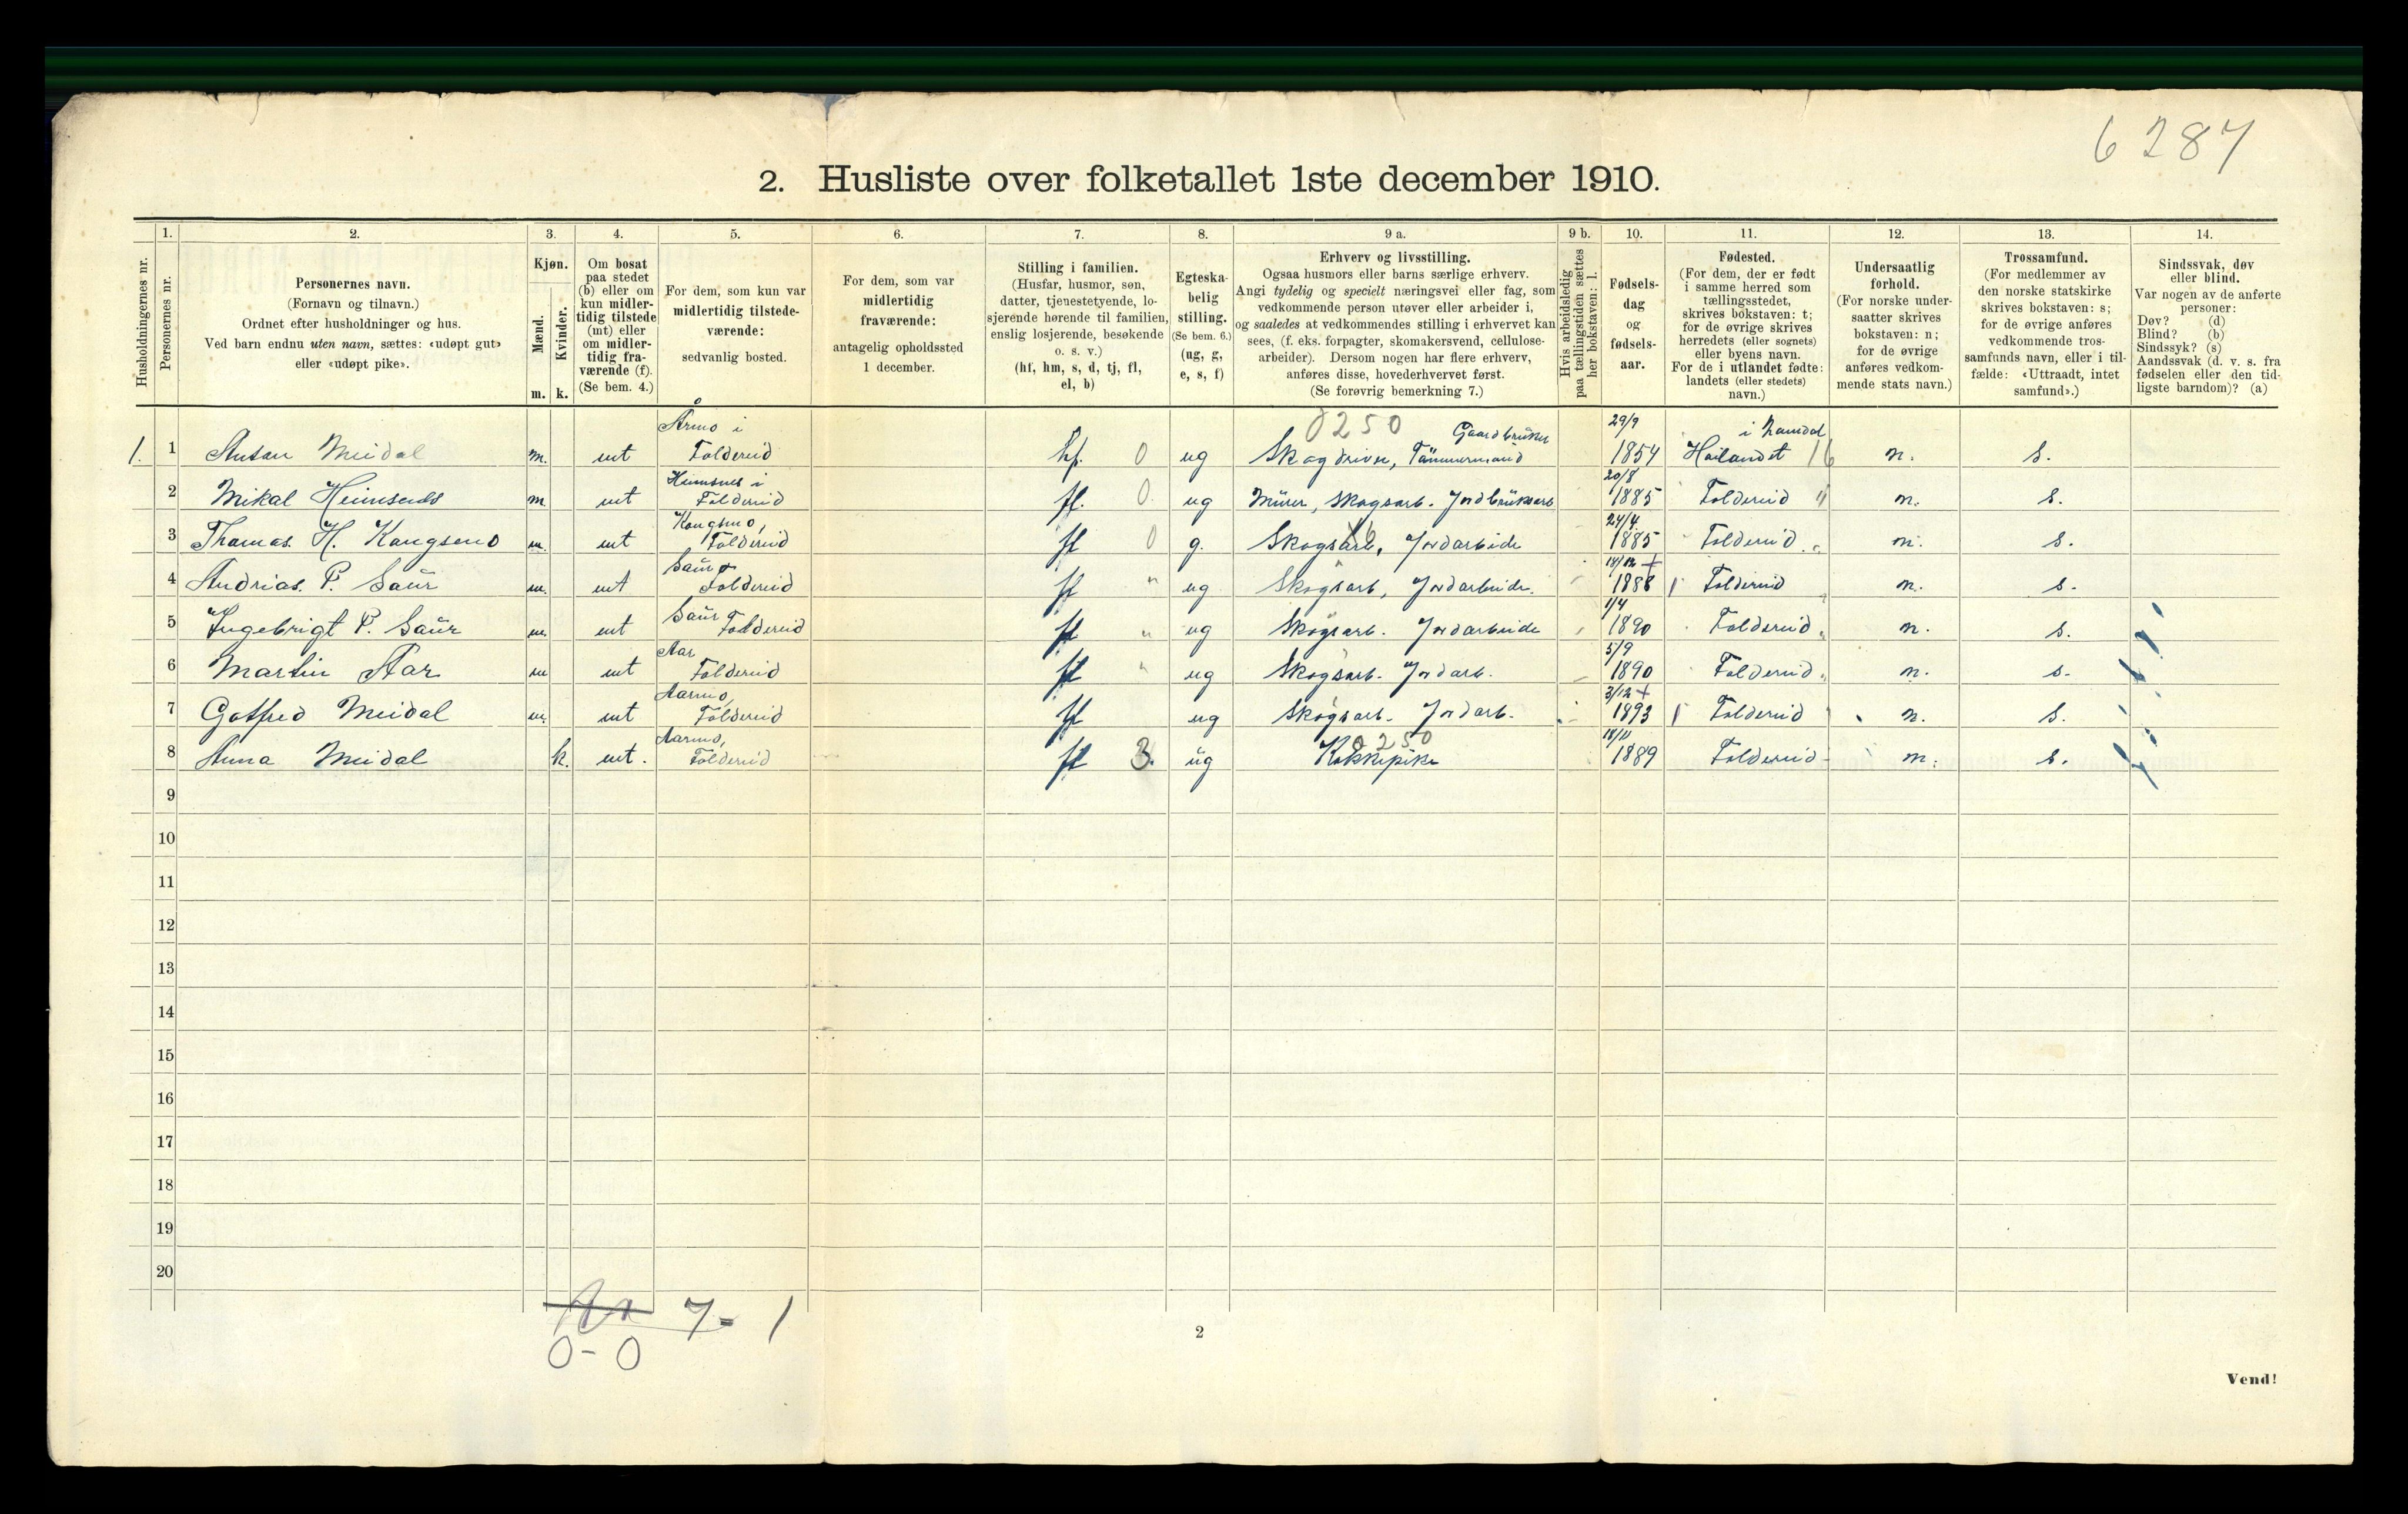 6287
2. Husliste over folketallet 1ste december 1910.
Husholdningernes nr.
1.
Personernes nr.
2.
Personernes navn.
(Fornavn og tilnavn.)
Ordnet efter husholdninger og hus.
Ved barn endnu uten navn, sættes: «udøpt gut»
eller «udøpt pike».
3.
Kjøn.
Mænd.
Kvinder.
m. k.
4.
Om bosat
paa stedet
(b) eller om
kun midler-
tidig tilstede
(mt) eller
om midler-
tidig fra-
værende (f).
(Se bem. 4.)
5.
For dem, som kun var
midlertidig tilstede-
værende:
sedvanlig bosted.
6.
For dem, som var
midlertidig
fraværende:
antagelig opholdssted
1 december.
7.
Stilling i familien.
(Husfar, husmor, søn,
datter, tjenestetyende, lo-
sjerende hørende til familien,
enslig losjerende, besøkende
o. s. v.)
(hf, hm, s, d, tj, fl,
el, b)
8.
Egteska-
belig
stilling.
(Se bem. 6.)
(ug, g,
e, s, f)
9 a.
Erhverv og livsstilling.
Ogsaa husmors eller barns særlige erhverv.
Angi tydelig og specielt næringsvei eller fag, som
vedkommende person utøver eller arbeider i,
og saaledes at vedkommendes stilling i erhvervet kan
sees, (f. eks. forpagter, skomakersvend, cellulose-
arbeider). Dersom nogen har flere erhverv,
anføres disse, hovederhvervet først.
(Se forøvrig bemerkning 7.)
9 b.
Hvis arbeidsledig
paa tællingstiden sættes
her bokstaven: l.
10.
Fødsels-
dag
og
fødsels-
aar.
11.
Fødested.
(For dem, der er født
i samme herred som
tællingsstedet,
skrives bokstaven: t;
for de øvrige skrives
herredets (eller sognets)
eller byens navn.
For de i utlandet fødte:
landets (eller stedets)
navn.)
12.
Undersaatlig
forhold.
(For norske under-
saatter skrives
bokstaven: n;
for de øvrige
anføres vedkom-
mende stats navn.)
13.
Trossamfund.
(For medlemmer av
den norske statskirke
skrives bokstaven: s;
for de øvrige anføres
vedkommende tros-
samfunds navn, eller i til-
fælde: «Uttraadt, intet
samfund».)
14.
Sindssvak, døv
eller blind.
Var nogen av de anførte
personer:
Døv? (d)
Blind? (b)
Sindssyk? (s)
Aandssvak (d. v. s. fra
fødselen eller den tid-
ligste barndom)? (a)
1. 1 Anton Meidal m. mt Årmo i Foldereid hf. 0 ug 0250 Skogdriver, Tømmermand Gaardbruker 29/9 1854 Høilandet i Namdal 16 n. s.
2 Mikal Heimsnes m mt Heimsnes i Foldereid fl. 0. ug Mürer, Skogsarb. Jordbrüksarb 20/8 1885 Foldereid " n. s.
3 Thomas H. Kongsmo m. mt Kongsmo, Foldereid fl 0 g. Skogsarb, Jordarbeide 24/4 1885 Foldereid n. s.
4 Andrias P. Saür m. mt Saür Foldereid fl " ug Skogsarb, Jordarbeide. 14/12 1888 Foldereid n. s.
5 Ingebrigt P. Saür m. mt Saür Foldereid fl " ug Skogsarb. Jordarbeide 1/4 1890 Foldereid n. s.
6 Martin Aar m mt Aar Foldereid fl " ug Skogsarb. Jordarb. 5/9 1890 Foldereid n. s.
7 Gotfred Meidal m. mt Aarmo, Foldereid fl ug Skogsarb. Jordarb. 3/12 1893 Foldereid n. s.
8 Anna Meidal k. mt. Aarmo, Foldereid fl 3. üg 0250 Kokkepike 18/11 1889 Foldereid n. s.
9
10
11
12
13
14
15
16
17
18
19
20
7 - 1
0 - 0
2
Vend!